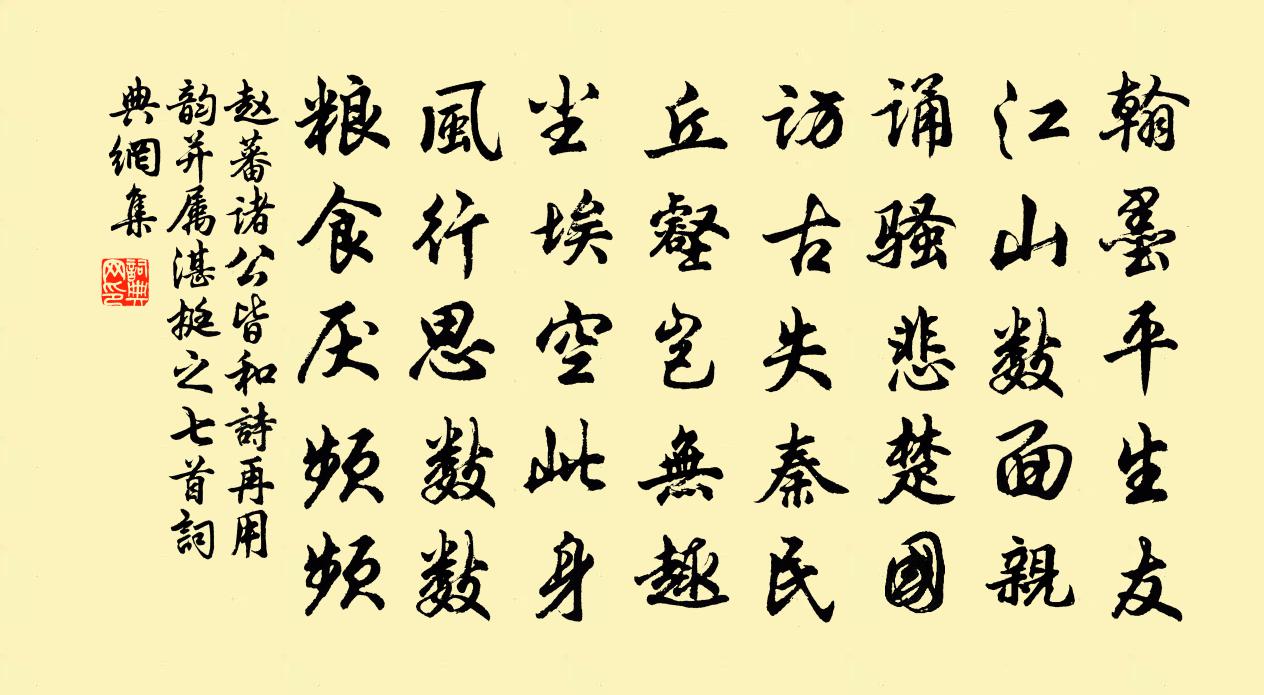 翰墨平生友
江山数面親
诵骚悲楚國
访古失秦民
丘壑岂無趣
尘埃空此身
風行思数数
粮食厌频频
赵蕃诸公皆和詩再用
韵并属湛挺之七首詞
典網集
詞典网印